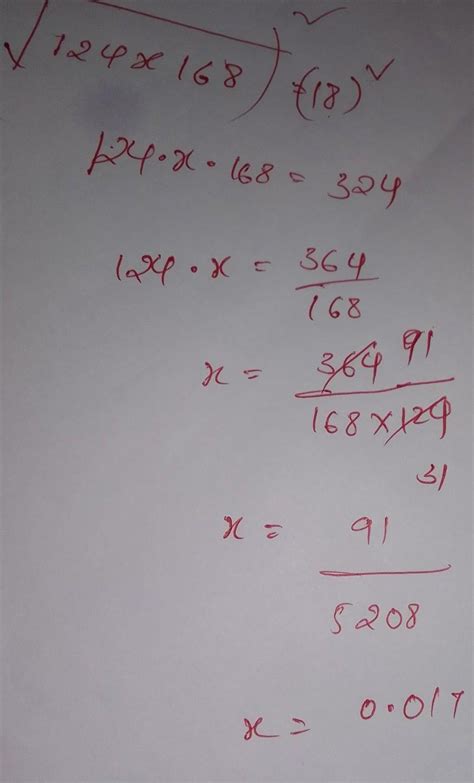 √124x168)² =(18)²
124·x·168 = 324
124·x = 364/168
x = 364 91/168×124 31
x = 91/5208
x = 0.017